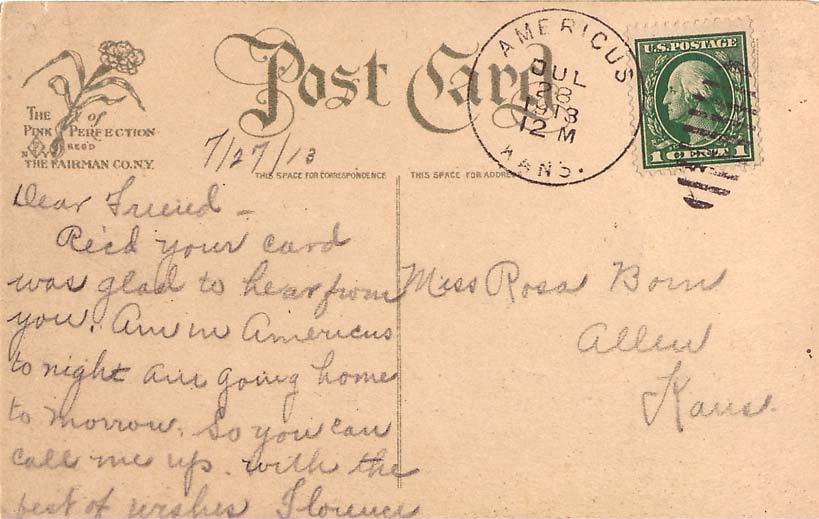 Post Card
AMERICUS
JUL
28
1913
12 M
KANS.
U.S. POSTAGE
1 CENT 1
THE
PINK of PERFECTION
REG'D
N.Y.
THE FAIRMAN CO. N.Y.
7/27/13
THIS SPACE FOR CORRESPONDENCE
THIS SPACE FOR ADDRESS
Dear Friend –
Rec'd your card
was glad to hear from
you. Am in Americus
to night am going home
to morrow. So you can
call me up. with the
best of wishes Florence
Miss Rosa Born
Allen
Kans.